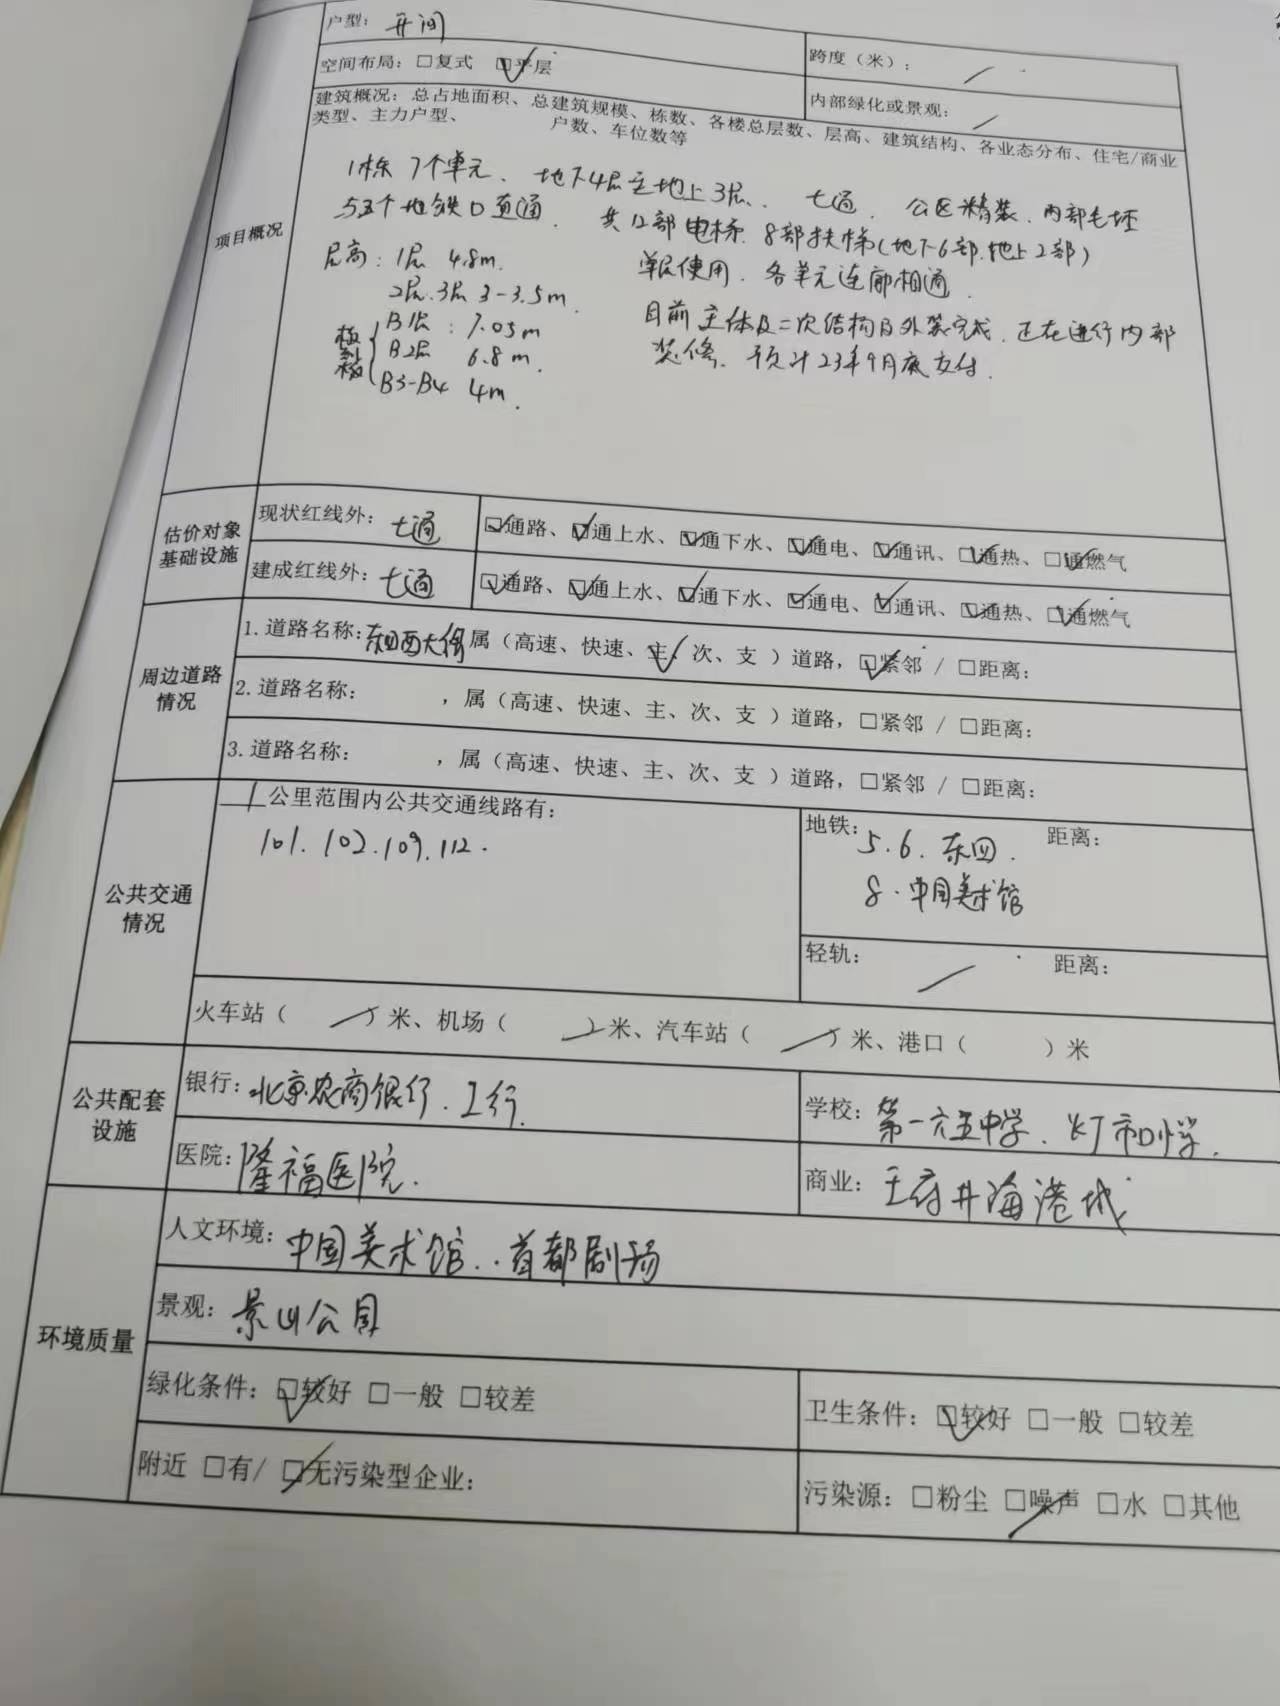 户型： 开间
跨度（米）： /
空间布局：□复式 ☑平层
内部绿化或景观： /
项目概况
建筑概况：总占地面积、总建筑规模、栋数、各楼总层数、层高、建筑结构、各业态分布、住宅/商业
类型、主力户型、 户数、车位数等
1栋 7个单元、地下4层至地上3层、 七通、 公区精装、内部毛坯
与五个地铁口直通、 共12部电梯、8部扶梯(地下6部、地上2部)
层高：1层 4.8m、 单层使用、各单元连廊相通、
2层、3层 3-3.5m、
目前主体及二次结构及外装完成、正在进行内部
B1层：7.05m
装修、预计23年9月底交付、
B2层 6.8m、
B3-B4 4m、
估价对象
基础设施
现状红线外： 七通 ☑通路、☑通上水、☑通下水、☑通电、☑通讯、☑通热、☑通燃气
建成红线外： 七通 ☑通路、☑通上水、☑通下水、☑通电、☑通讯、☑通热、☑通燃气
周边道路
情况
1.道路名称：东四西大街属（高速、快速、主✓、次、支 ）道路，☑紧邻 / □距离：
2.道路名称： ，属（高速、快速、主、次、支 ）道路，□紧邻 / □距离：
3.道路名称： ，属（高速、快速、主、次、支 ）道路，□紧邻 / □距离：
公共交通
情况
1公里范围内公共交通线路有：
101、102、109、112、
地铁：5、6、东四、 距离：
8、中国美术馆
轻轨： / 距离：
火车站（ / ）米、机场（ / ）米、汽车站（ / ）米、港口（ ）米
公共配套
设施
银行：北京农商银行、工行、
学校：第一六五中学、灯市口小学、
医院：隆福医院、
商业：王府井海港城
环境质量
人文环境：中国美术馆、、首都剧场
景观：景山公园
绿化条件：☑较好 □一般 □较差
卫生条件：☑较好 □一般 □较差
附近 □有/ ☑无污染型企业：
污染源：□粉尘 ☑噪声 □水 □其他